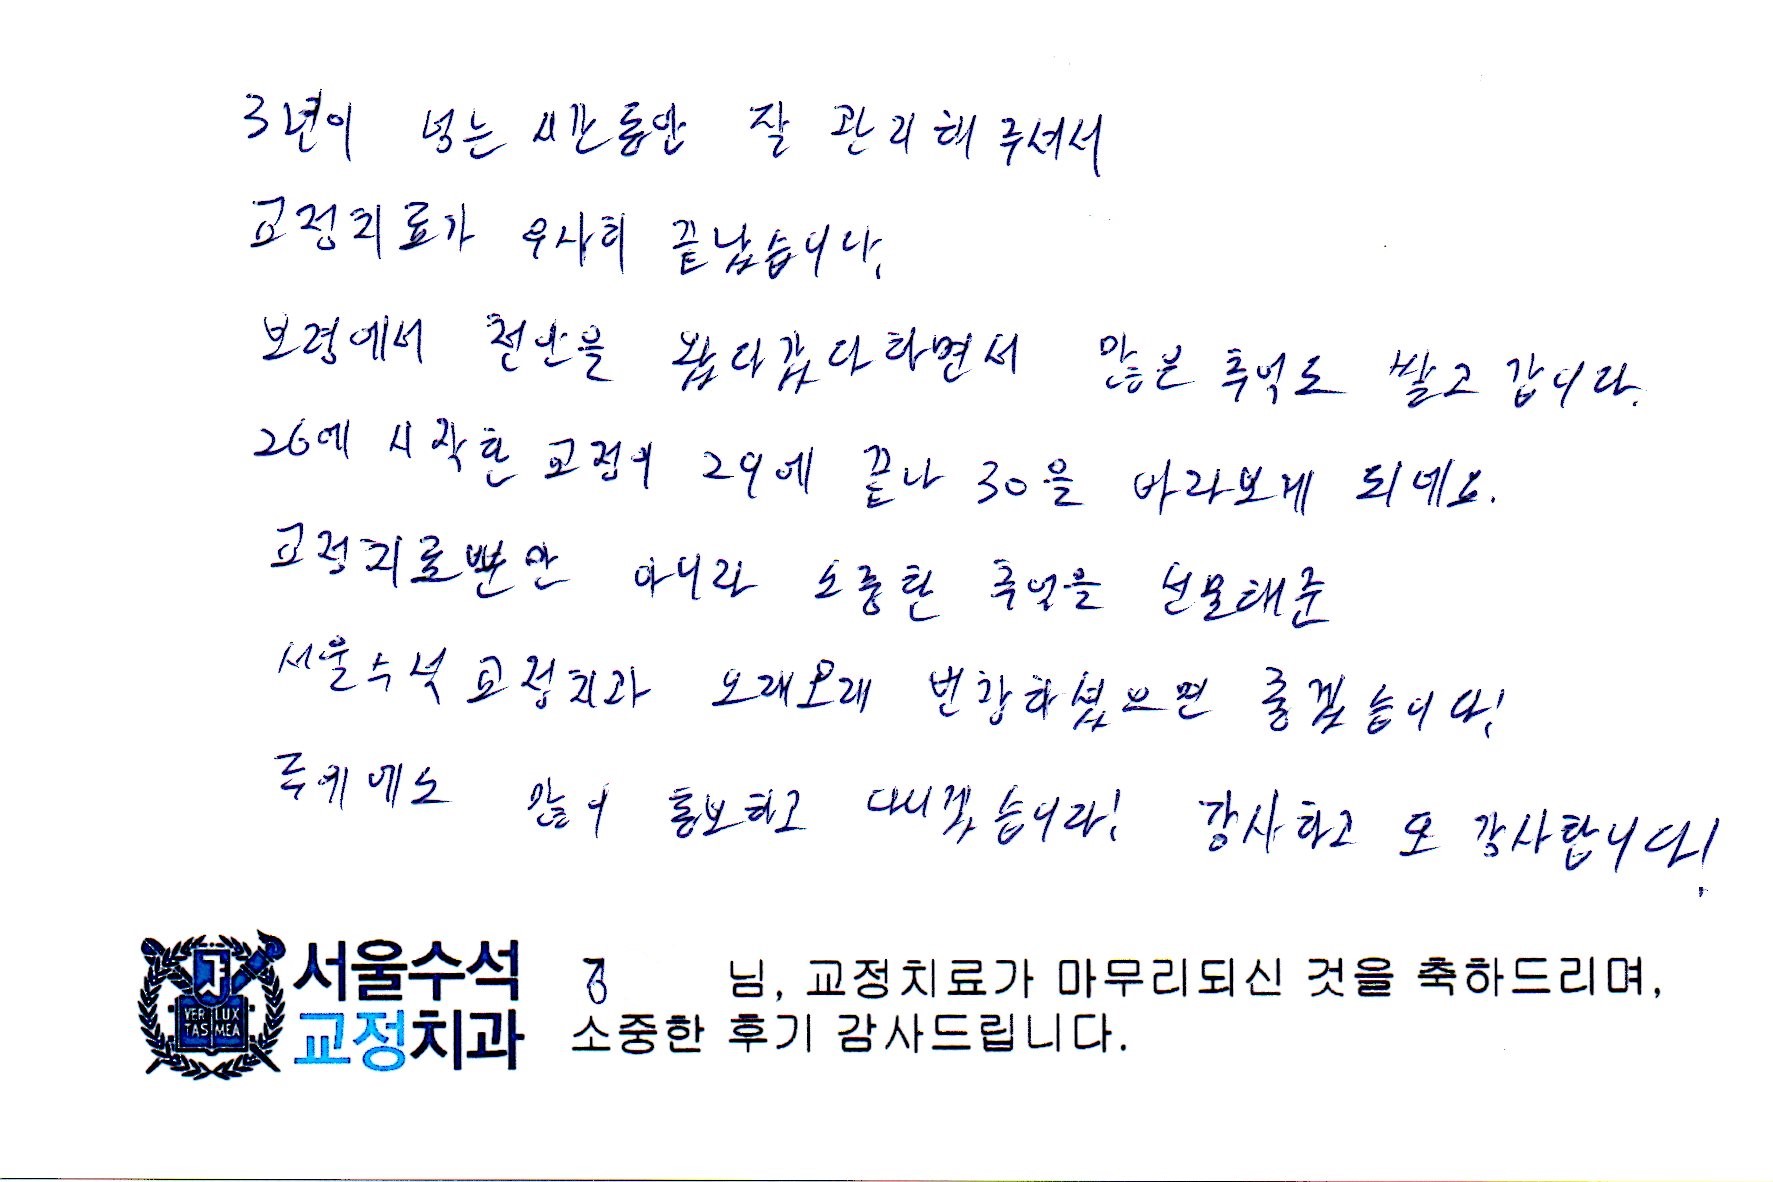 3년이 넘는 시간동안 잘 관리해주셔서
교정치료가 무사히 끝났습니다.
보령에서 천안을 왔다갔다하면서 많은 추억도 쌓고 갑니다.
26에 시작한 교정이 29에 끝나 30을 바라보게 되네요.
교정치료뿐만 아니라 소중한 추억을 선물해준
서울수석교정치과 오래오래 번창하셨으면 좋겠습니다!
주위에도 많이 홍보하고 다니겠습니다! 감사하고 또 감사합니다!
VERI LUX
TAS MEA
서울수석
교정치과
님, 교정치료가 마무리되신 것을 축하드리며,
소중한 후기 감사드립니다.